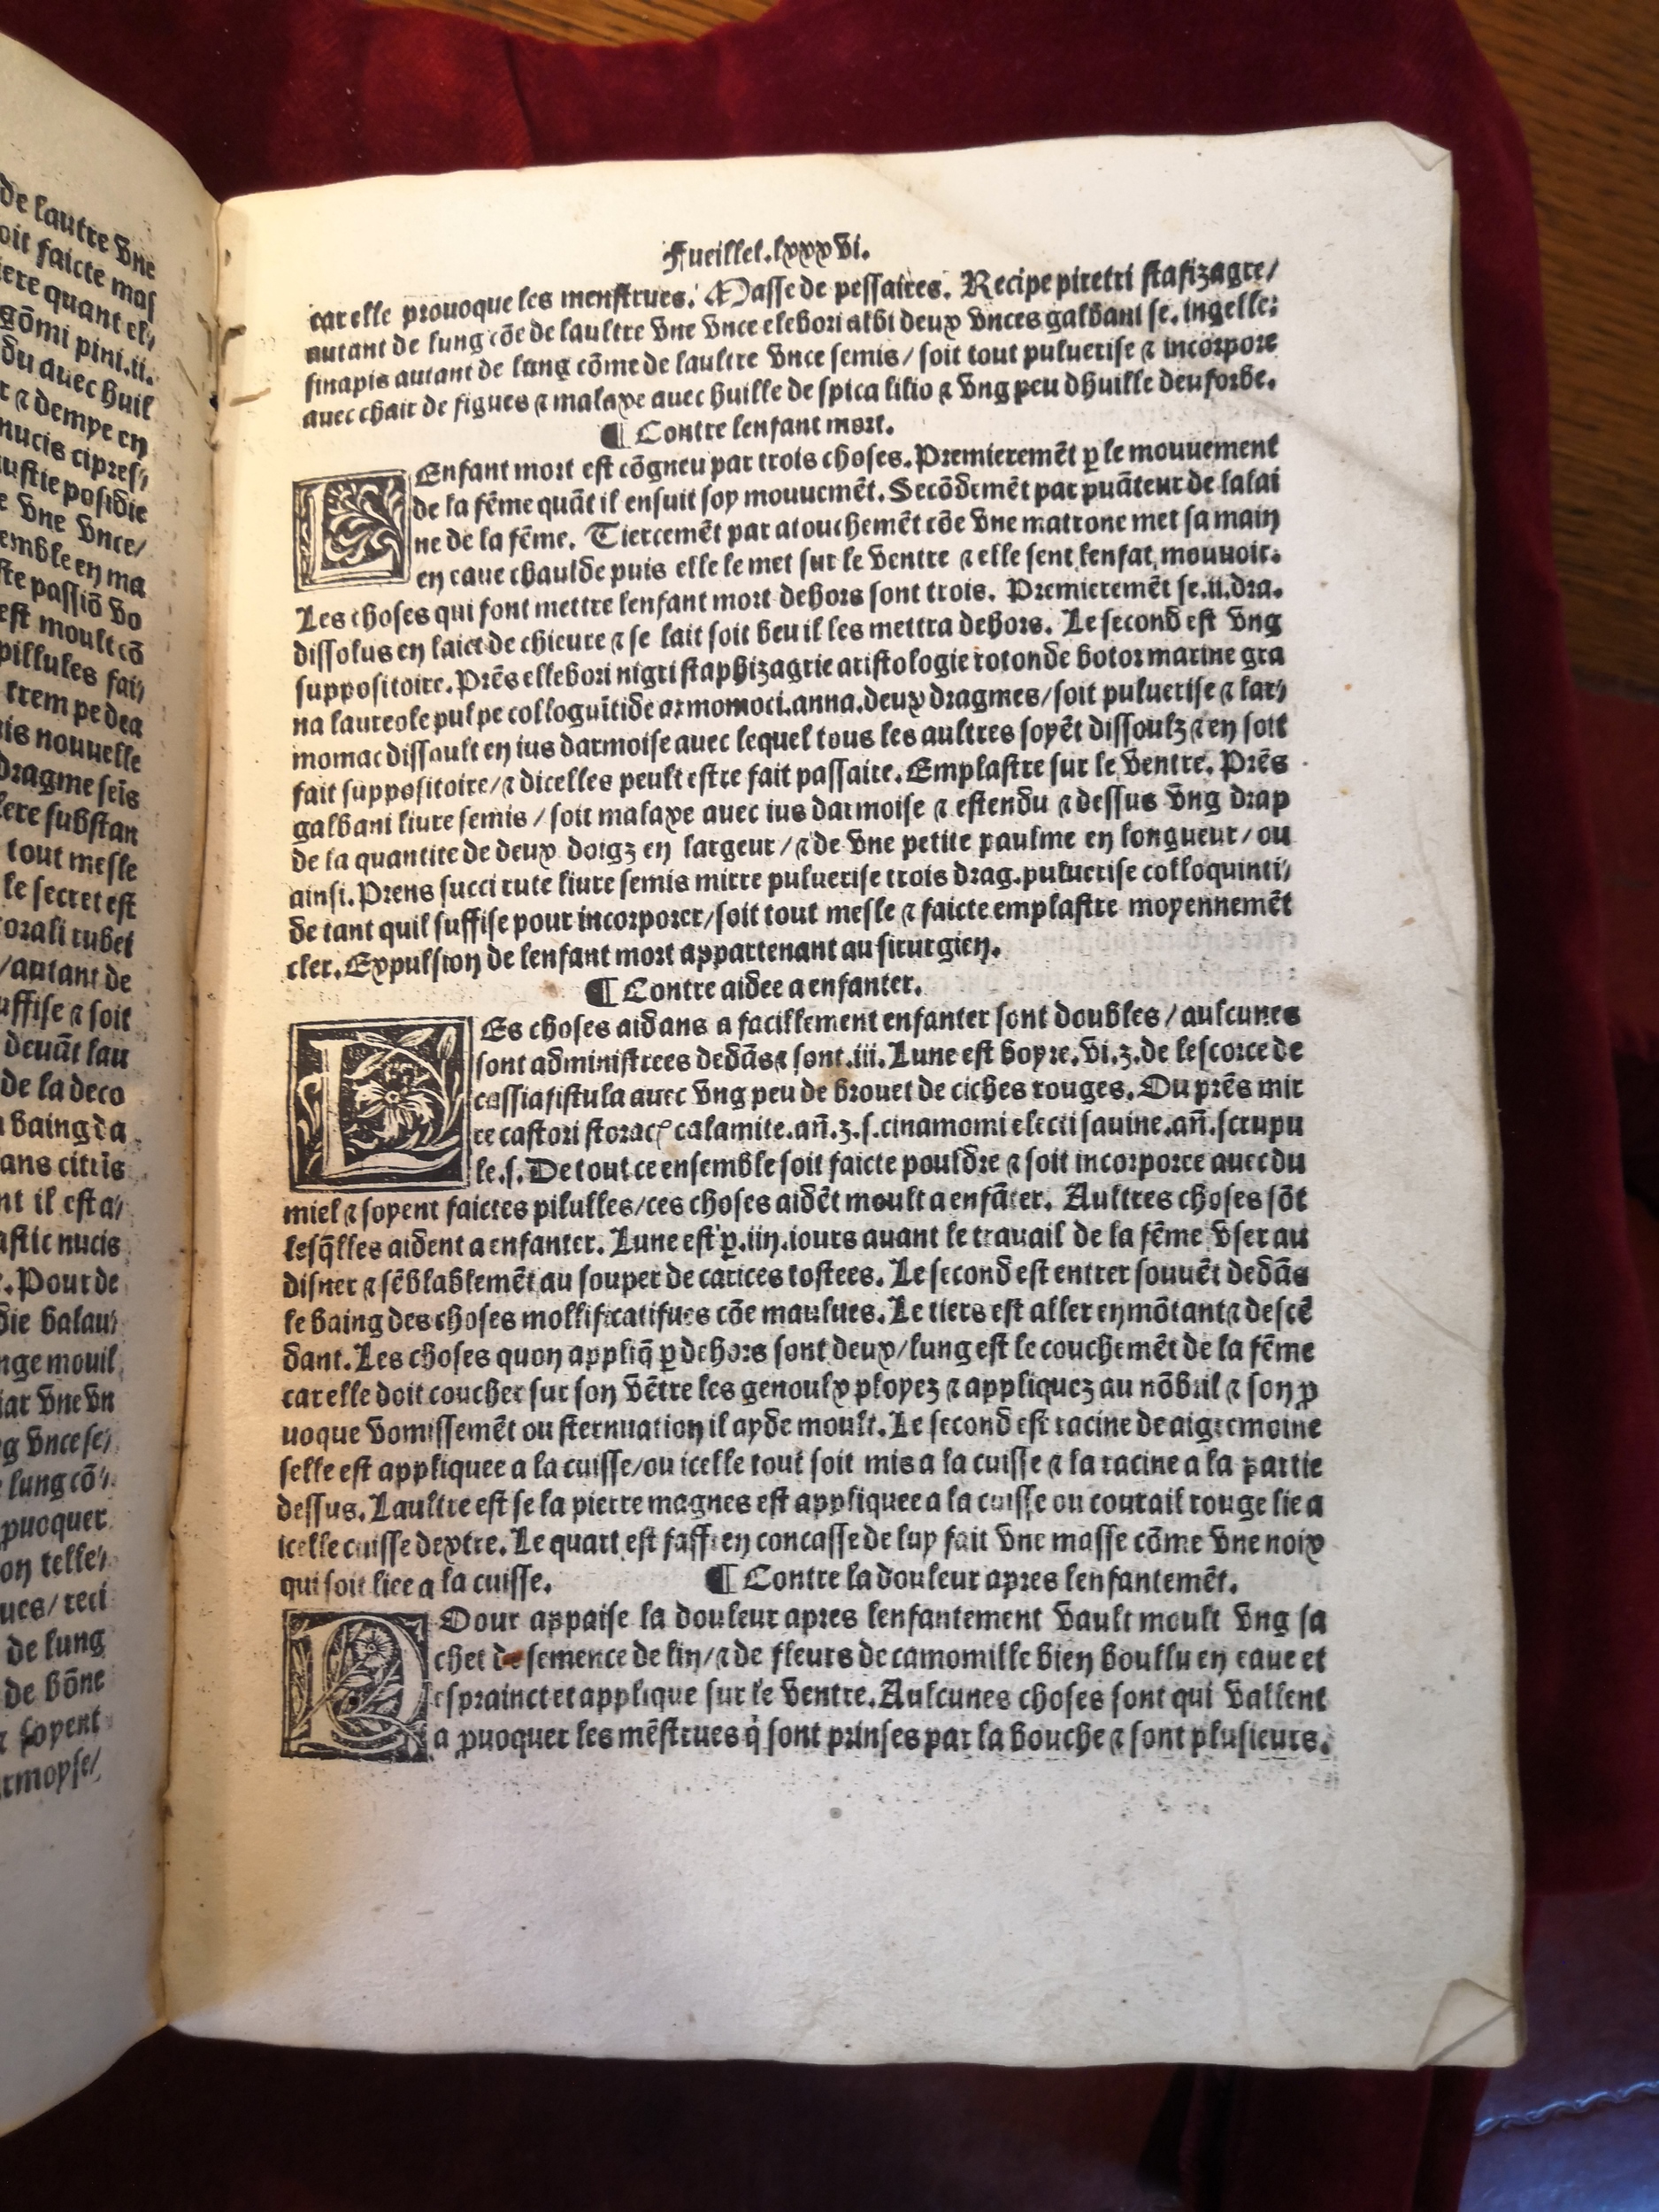 de lautre vne
oit faicte mas
iere quant el/
gōmi pini.ii.
du auec huil
r ⁊ dempe en
nucis cipres/
ustie posidie
e vne vnce/
emble en ma
ste passiō vo
est moult cō
pillules fai/
trempe dea
is nouuelle
dragme seīs
lere substan
tout mesle
le secret est
orali rubei
/autant de
uffise ⁊ soit
deuāt lau
de la deco
baing da
ans citris
nt il est a/
astic nucis
. Pour de
die balau/
nge mouil
iar vne vn
g vnce se/
lung cō/
puoquer
on telle/
ues/reci
de lung
de bōne
⁊ soyent
rmoyse/
Fueillet.lxxxvi.
car elle prouoque les menstrues. Masse de pessaires. Recipe piretri stafizagre/
autant de lung cōe de laultre vne vnce elebori albi deux vnces galbani se. ingelle:
sinapis autant de lung cōme de laultre vnce semis/soit tout puluerise ⁊ incorpore
auec chair de figues ⁊ malaxe auec huille de spica lilio ⁊ vng peu dhuille deuforbe.
¶ Contre lenfant mort.
LEnfant mort est cōgneu par trois choses. Premieremēt ꝑ le mouuement
de la fēme quāt il ensuit soy mouuemēt. Secōdemēt par puāteur de lalai
ne de la fēme. Tiercemēt par atouchemēt cōe vne matrone met sa main
en eaue chaulde puis elle le met sur le ventre ⁊ elle sent lenfāt mouuoir.
Les choses qui font mettre lenfant mort dehors sont trois. Premieremēt se.ii.dra.
dissolus en laict de chieure ⁊ se lait soit beu il les mettra dehors. Le second est vng
suppositoire. Prēs ellebori nigri staphizagrie aristologie rotonde botor marine gra
na laureole pulpe colloguītide armomoci.anna.deux dragmes/soit puluerise ⁊ lar/
momac dissoult en ius darmoise auec lequel tous les aultres soyēt dissoulz ⁊ en soit
fait suppositoire/⁊ dicelles peult estre fait passaire. Emplastre sur le ventre. Prēs
galbani liure semis/soit malaxe auec ius darmoise ⁊ estendu ⁊ dessus vng drap
de la quantite de deux doigz en largeur/⁊ de vne petite paulme en longueur/ou
ainsi. Prens succi rute liure semis mirre puluerise trois drag. puluerise colloquinti/
de tant quil suffise pour incorporer/soit tout mesle ⁊ faicte emplastre moyennemēt
cler. Expulsion de lenfant mort appartenant au sirurgien.
¶ Contre aidee a enfanter.
LEs choses aidans a facillement enfanter sont doubles/aulcunes
sont administrees dedās⁊ sont.iii. Lune est boyre.vi.ʒ.de lescorce de
cassiafistula auec vng peu de brouet de ciches rouges. Ou prēs mir
re castori storacꝭ calamite.an̄.ʒ.s.cinamomi electi sauine.an̄.scrupu
le.s. De tout ce ensemble soit faicte pouldre ⁊ soit incorporee auec du
miel ⁊ soyent faictes pilulles/ces choses aidēt moult a enfāter. Aultres choses sōt
lesq̄lles aident a enfanter. Lune est ꝑ.iiii.iours auant le trauail de la fēme vser au
disner ⁊ sēblablemēt au souper de carices tostees. Le second est entrer souuēt dedās
le baing des choses mollificatifues cōe maulues. Le tiers est aller en mōtant⁊ descē
dant. Les choses quon appliq̄ ꝑ dehors sont deux/lung est le couchemēt de la fēme
car elle doit coucher sur son vētre les genoulx ployez ⁊ appliquez au nōbril ⁊ son ꝓ
uoque vomissemēt ou sternuation il ayde moult. Le second est racine de aigremoine
selle est appliquee a la cuisse/ou icelle tout soit mis a la cuisse ⁊ la racine a la partie
dessus. Laultre est se la pierre magnes est appliquee a la cuisse ou courail rouge lie a
icelle cuisse dextre. Le quart est saffren concasse de luy fait vne masse cōme vne noix
qui soit liee a la cuisse. ¶ Contre la douleur apres lenfantemēt.
POour appaise la douleur apres lenfantement vault moult vng sa
chet de semence de lin/⁊ de fleurs de camomille bien boullu en eaue et
espraincteet applique sur le ventre. Aulcunes choses sont qui vallent
a ꝓuoquer les mēstrues q̇ sont prinses par la bouche ⁊ sont plusieurs.